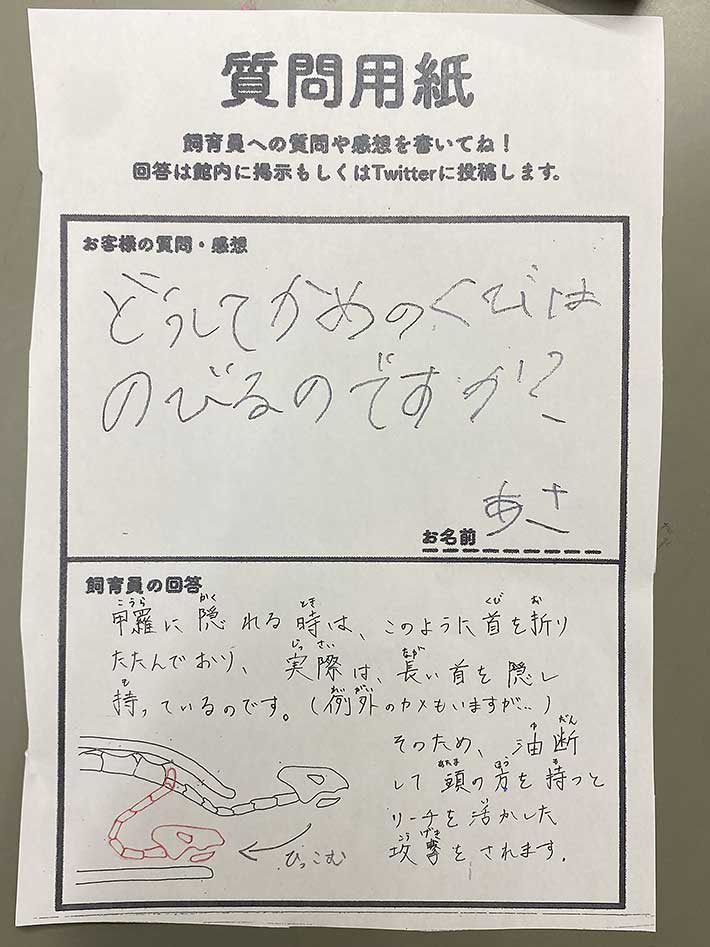 質問用紙
飼育員への質問や感想を書いてね！
回答は館内に掲示もしくはTwitterに投稿します。
お客様の質問・感想
どうしてかめのくびは
のびるのですか?
お名前 あさ
飼育員の回答
甲羅に隠れる時は、このように首を折り
たたんでおり、実際は、長い首を隠し
持っているのです。(例外のカメもいますが…)
そのため、油断
して頭の方を持つと
リーチを活かした
攻撃をされます.
ひっこむ